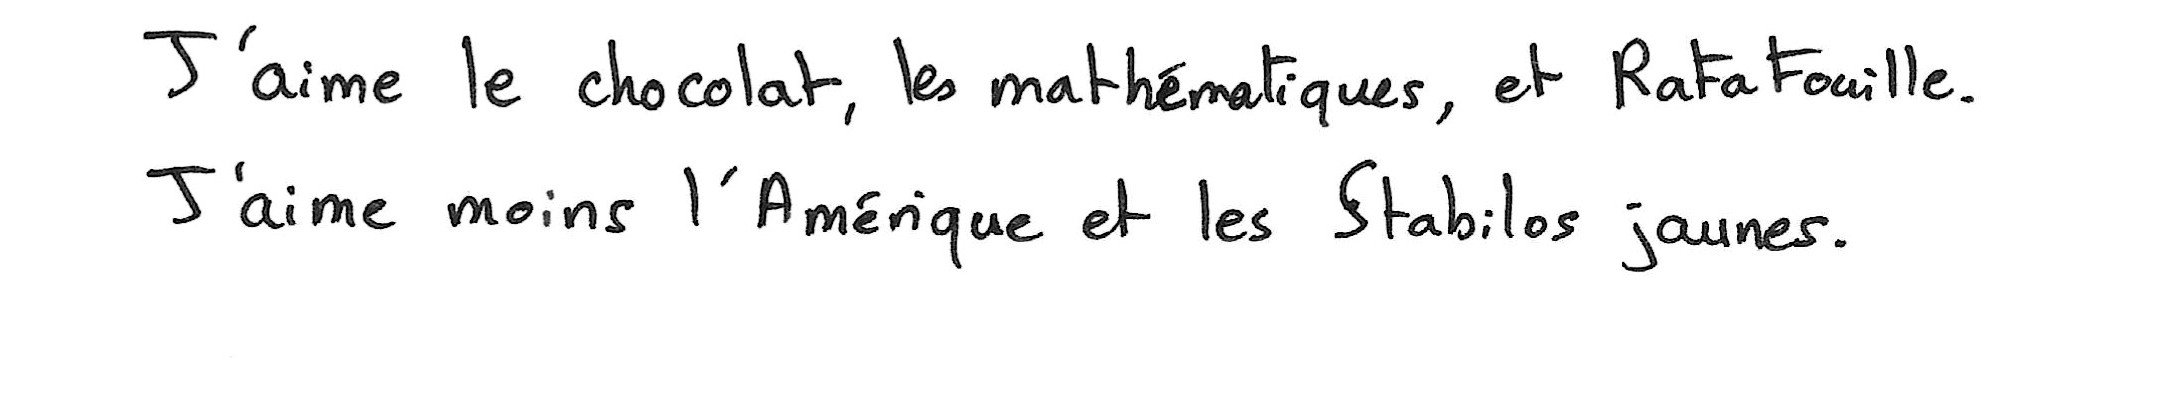 J'aime le chocolat, les mathématiques, et Ratatouille.
J'aime moins l'Amérique et les Stabilos jaunes.